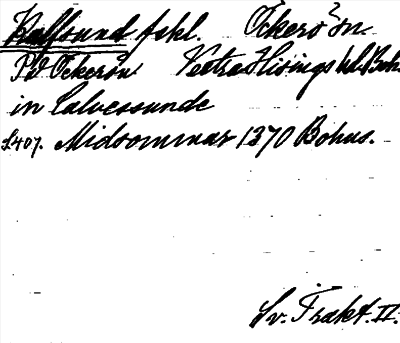 Kalfsund fskl. Öckerö sn.
På Öckerön Vestra Hisings hd. Boh.
in Calvessunde
s. 407. Midsommar 1370 Bohus.
Sv. Trakt. II.